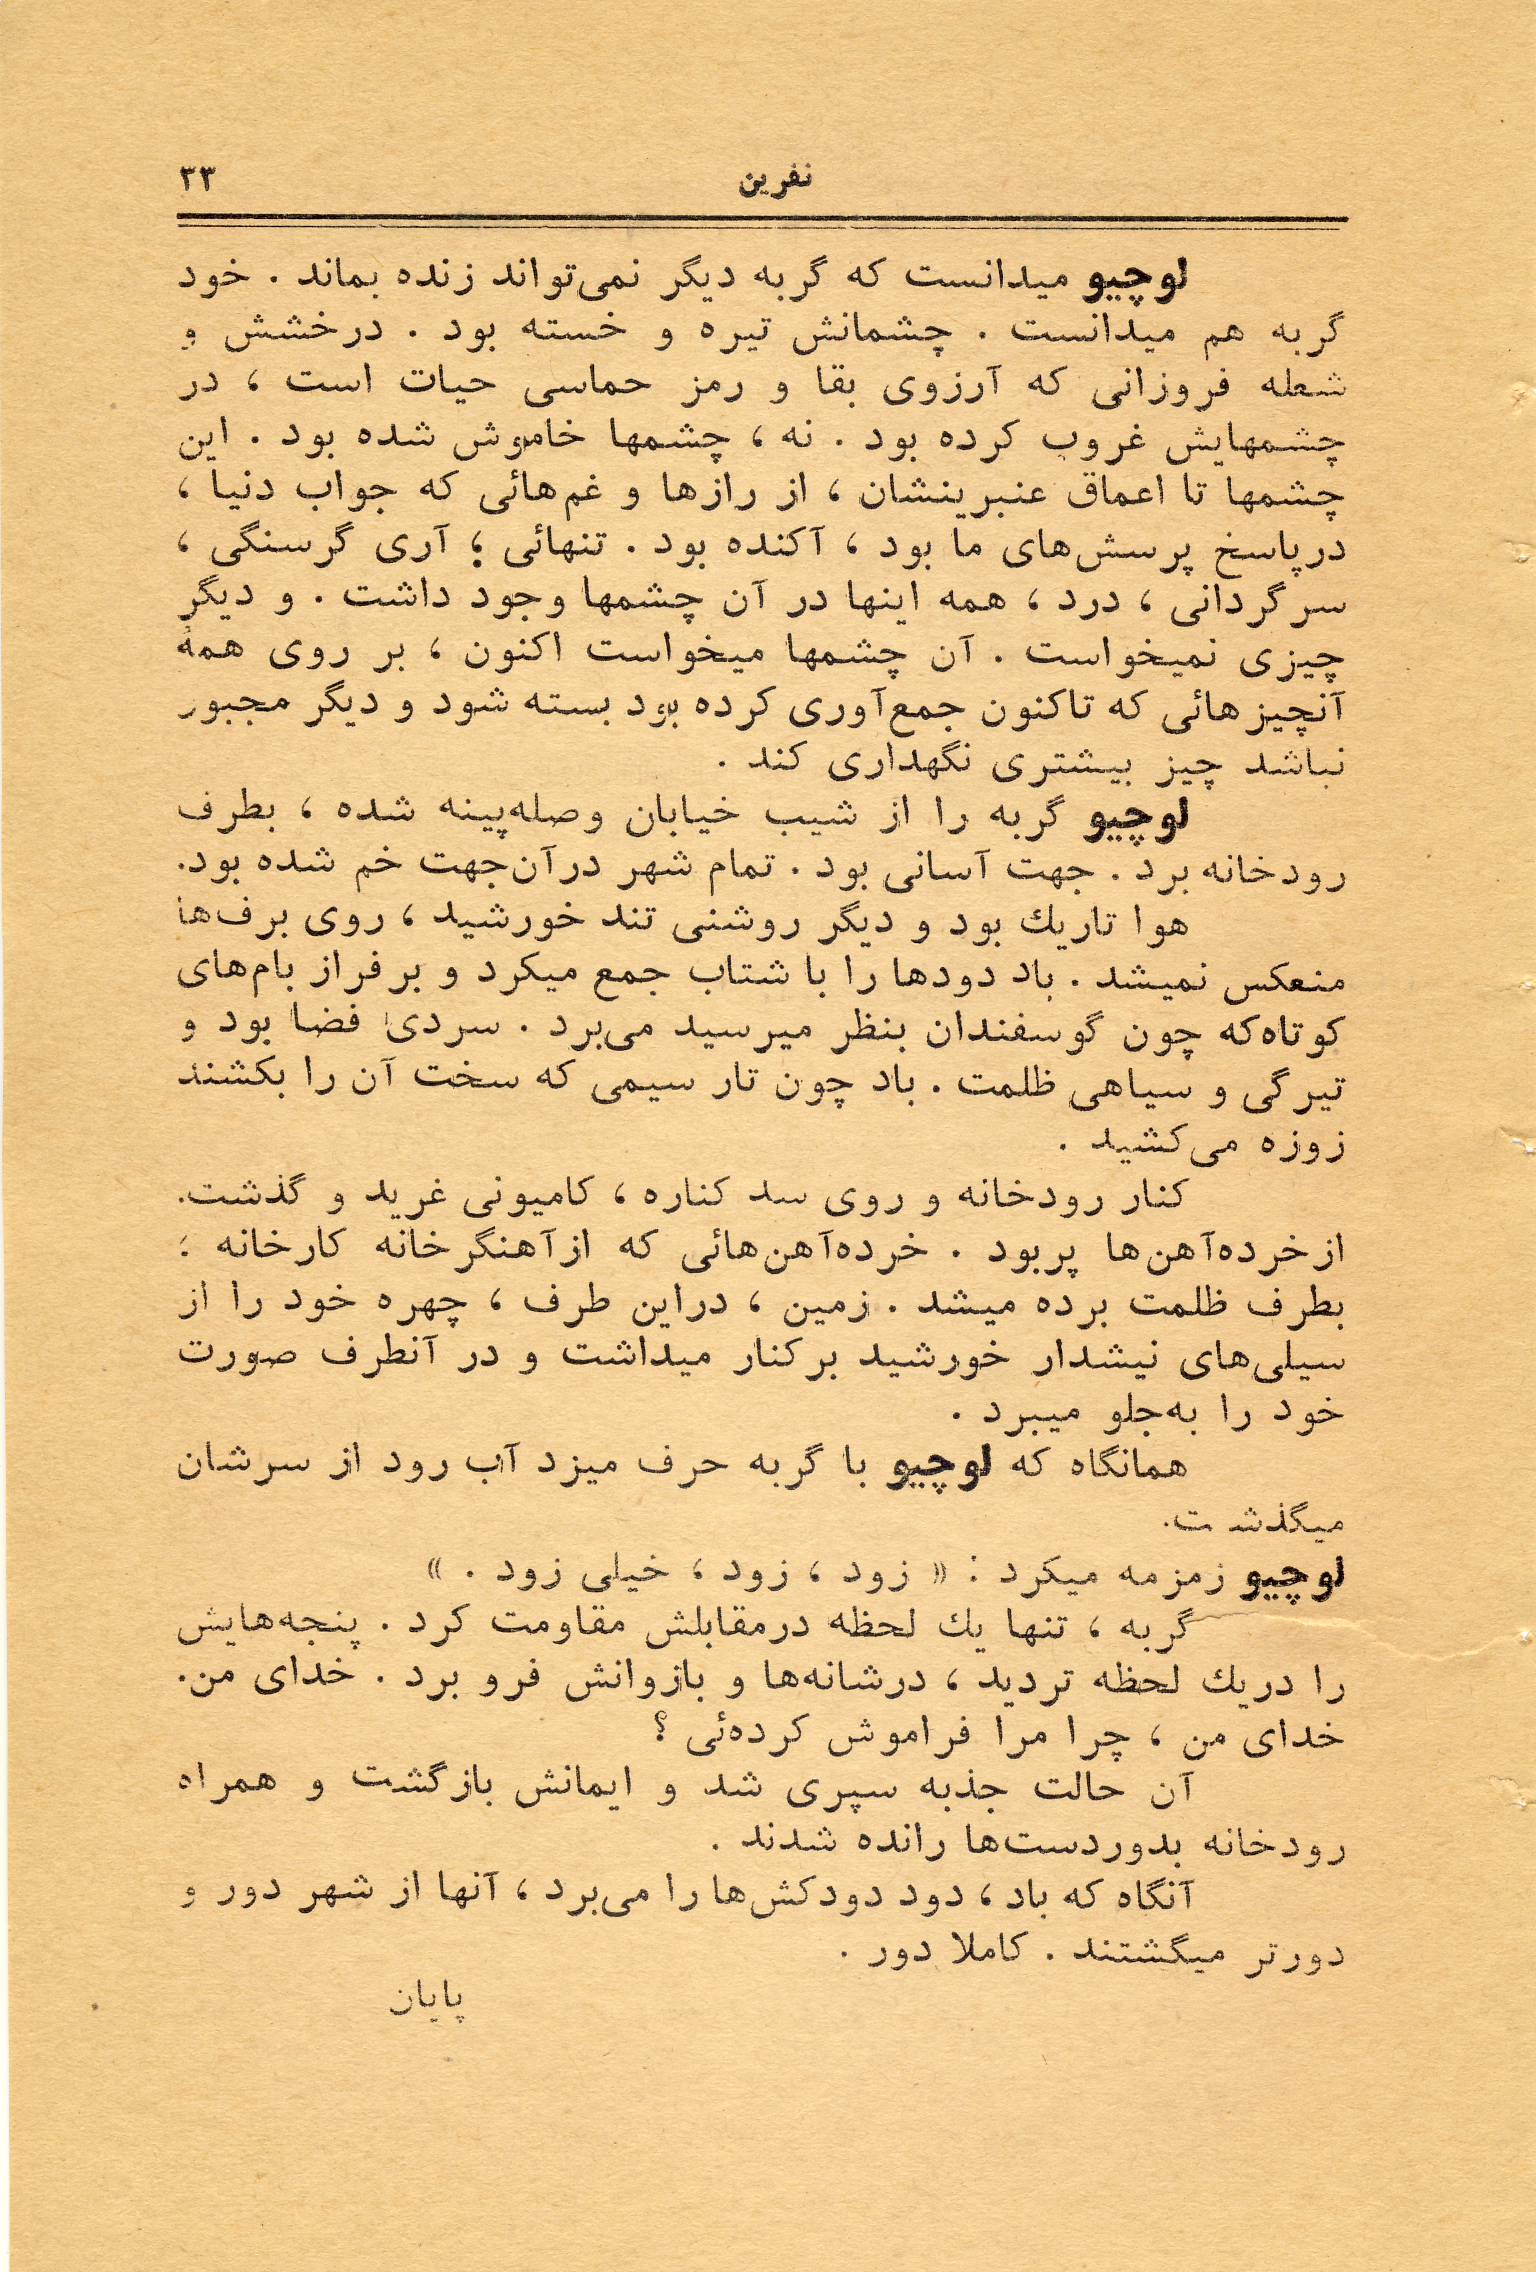 نفرین ۳۳
لوچیو میدانست که گربه دیگر نمی‌تواند زنده بماند . خود
گربه هم میدانست . چشمانش تیره و خسته بود . درخشش و
شعله فروزانی که آرزوی بقا و رمز حماسی حیات است ، در
چشمهایش غروب کرده بود . نه ، چشمها خاموش شده بود . این
چشمها تا اعماق عنبرینشان ، از رازها و غم‌هائی که جواب دنیا ،
درپاسخ پرسش‌های ما بود ، آکنده بود . تنهائی ؛ آری گرسنگی ،
سرگردانی ، درد ، همه اینها در آن چشمها وجود داشت . و دیگر
چیزی نمیخواست . آن چشمها میخواست اکنون ، بر روی همهٔ
آنچیزهائی که تاکنون جمع‌آوری کرده بود بسته شود و دیگر مجبور
نباشد چیز بیشتری نگهداری کند .
لوچیو گربه را از شیب خیابان وصله‌پینه شده ، بطرف
رودخانه برد . جهت آسانی بود . تمام شهر درآن‌جهت خم شده بود.
هوا تاریك بود و دیگر روشنی تند خورشید ، روی برف‌ها
منعکس نمیشد . باد دودها را با شتاب جمع میکرد و برفراز بام‌های
کوتاه‌که چون گوسفندان بنظر میرسید می‌برد . سردی فضا بود و
تیرگی و سیاهی ظلمت . باد چون تار سیمی که سخت آن را بکشند
زوزه می‌کشید .
کنار رودخانه و روی سد کناره ، کامیونی غرید و گذشت.
ازخرده‌آهن‌ها پربود . خرده‌آهن‌هائی که ازآهنگرخانه کارخانه ؛
بطرف ظلمت برده میشد . زمین ، دراین طرف ، چهره خود را از
سیلی‌های نیشدار خورشید برکنار میداشت و در آنطرف صورت
خود را به‌جلو میبرد .
همانگاه که لوچیو با گربه حرف میزد آب رود از سرشان
میگذشت.
لوچیو زمزمه میکرد : « زود ، زود ، خیلی زود . »
گربه ، تنها یك لحظه درمقابلش مقاومت کرد . پنجه‌هایش
را دریك لحظه تردید ، درشانه‌ها و بازوانش فرو برد . خدای من.
خدای من ، چرا مرا فراموش کرده‌ئی ؟
آن حالت جذبه سپری شد و ایمانش بازگشت و همراه
رودخانه بدوردست‌ها رانده شدند .
آنگاه که باد ، دود دودکش‌ها را می‌برد ، آنها از شهر دور و
دورتر میگشتند . کاملا دور .
پایان